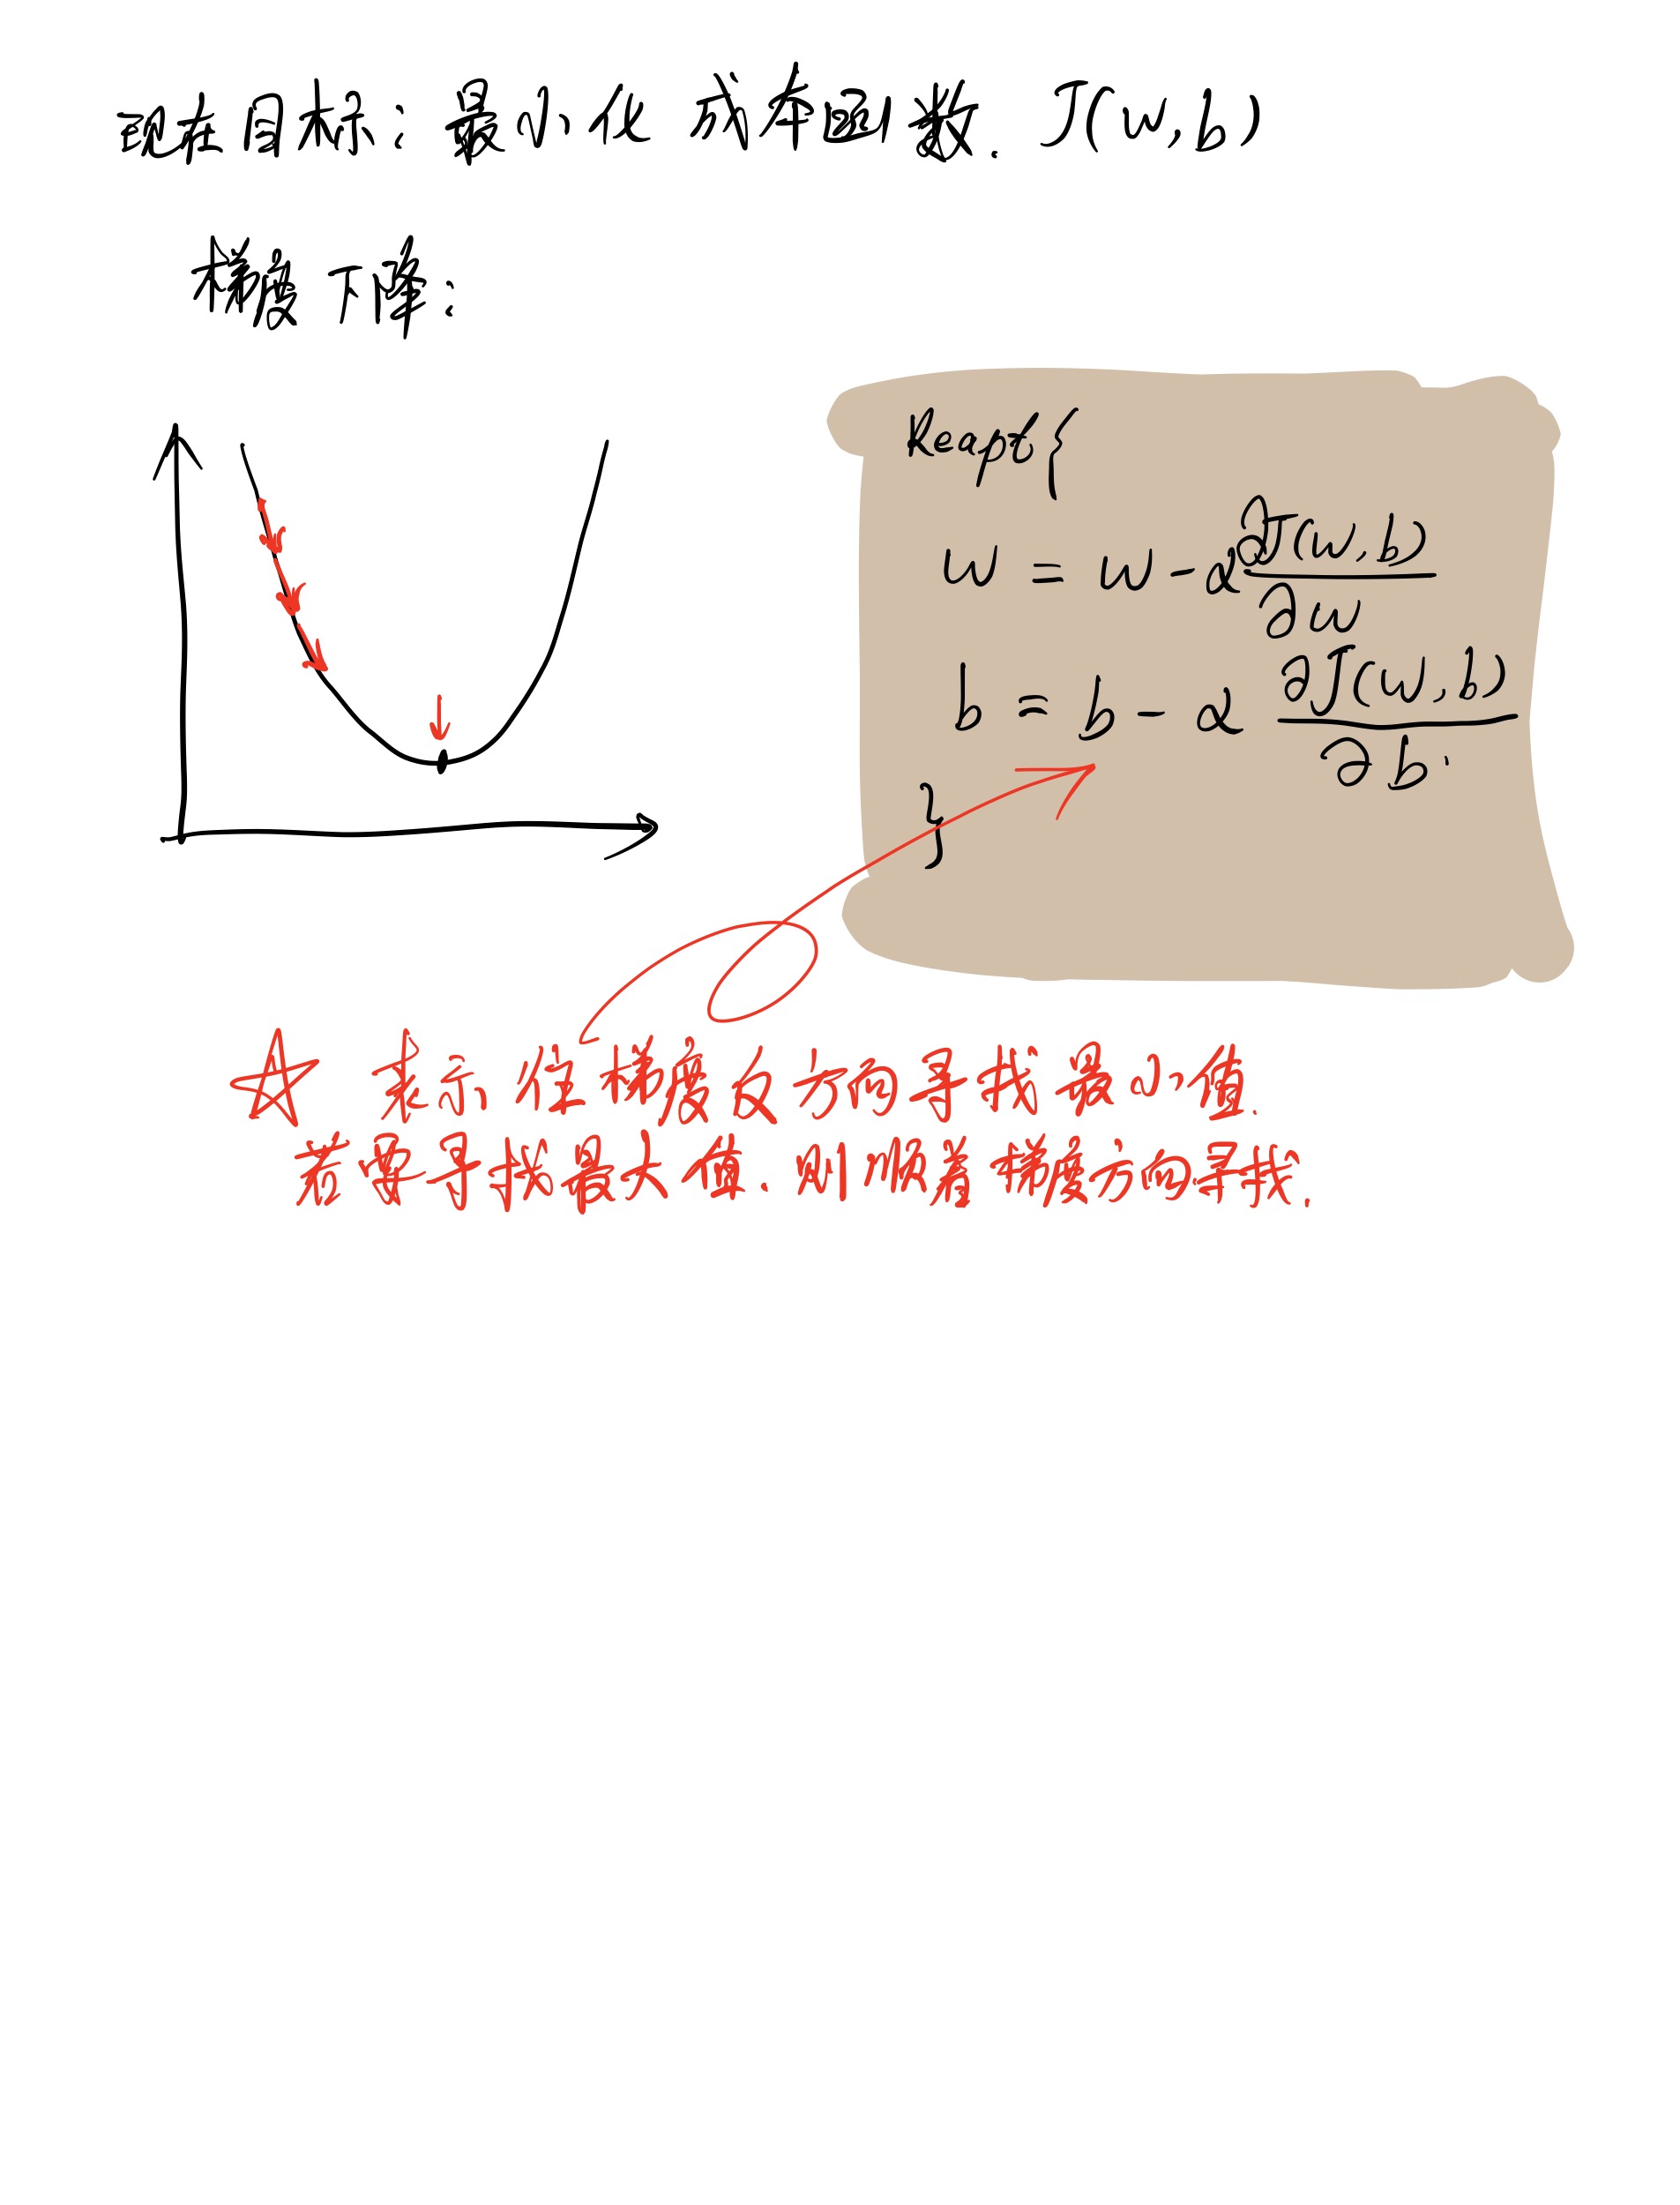 现在目标：最小化 成本函数. J(w,b)
梯度下降：
Reapt {
w = w - α ∂J(w,b)/∂w
b = b - α ∂J(w,b)/∂b
}
表示 往梯度反方向寻找最小值.
若要寻找最大值. 则顺着梯度方向寻找.